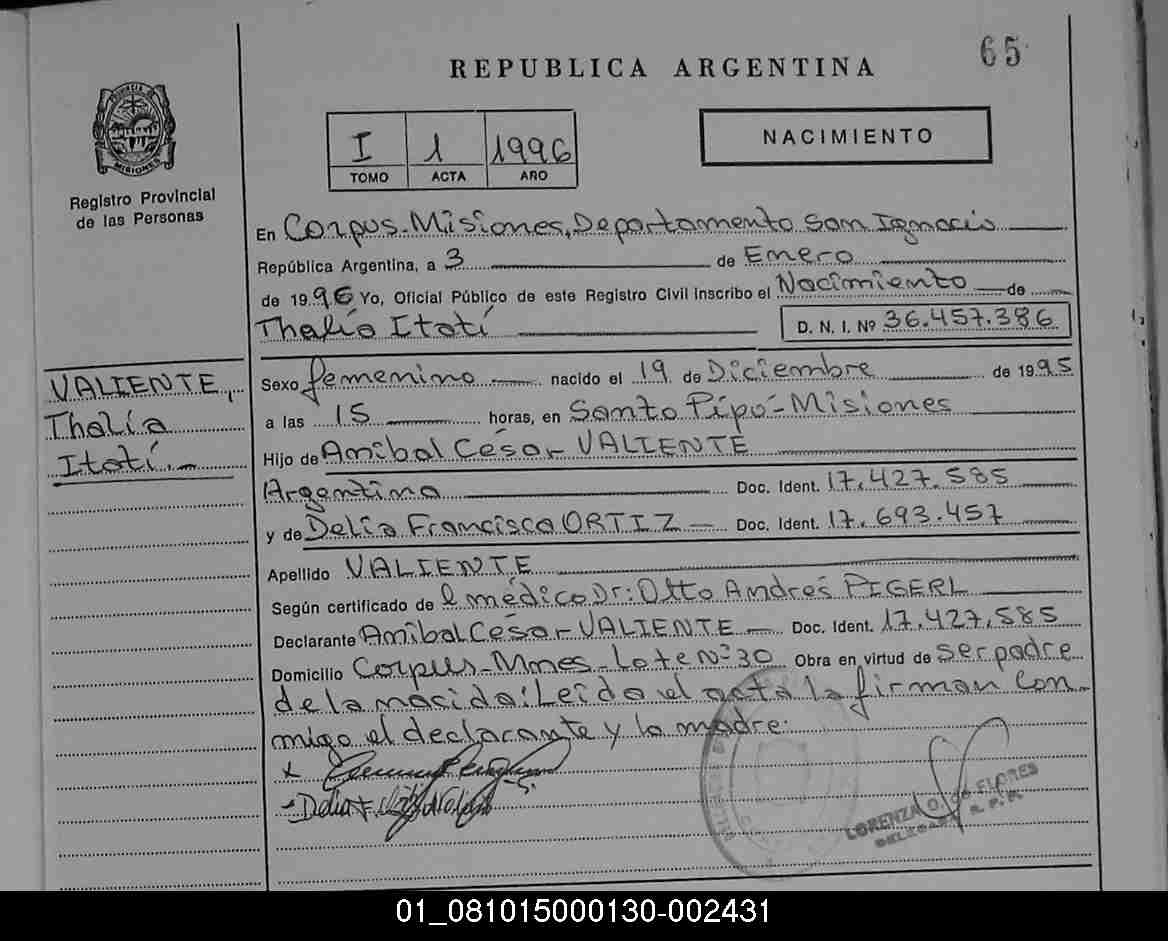 65
REPUBLICA ARGENTINA
PROVINCIA DE MISIONES
Registro Provincial
de las Personas
I 1 1996
TOMO ACTA AÑO
NACIMIENTO
En Corpus-Misiones, Departamento San Ignacio
República Argentina, a 3 de Enero
de 1996 Yo, Oficial Público de este Registro Civil inscribo el Nacimiento de
Thalía Itatí D. N. I. Nº 36.457.386
VALIENTE,
Thalía
Itatí.-
Sexo femenino nacido el 19 de Diciembre de 1995
a las 15 horas, en Santo Pipó-Misiones
Hijo de Aníbal César VALIENTE
Argentino Doc. Ident. 17.427.585
y de Delia Francisca ORTIZ Doc. Ident. 17.693.457
Apellido VALIENTE
Según certificado de el médico Dr: Otto Andrés PIGERL
Declarante Aníbal César VALIENTE Doc. Ident. 17.427.585
Domicilio Corpus-Mnes-Lote Nº 30 Obra en virtud de ser padre
de la nacida: Leído el acta la firman con-
migo el declarante y la madre:
LORENZA O. DE FLORES
DELEGADA R. P. P.
01_081015000130-002431